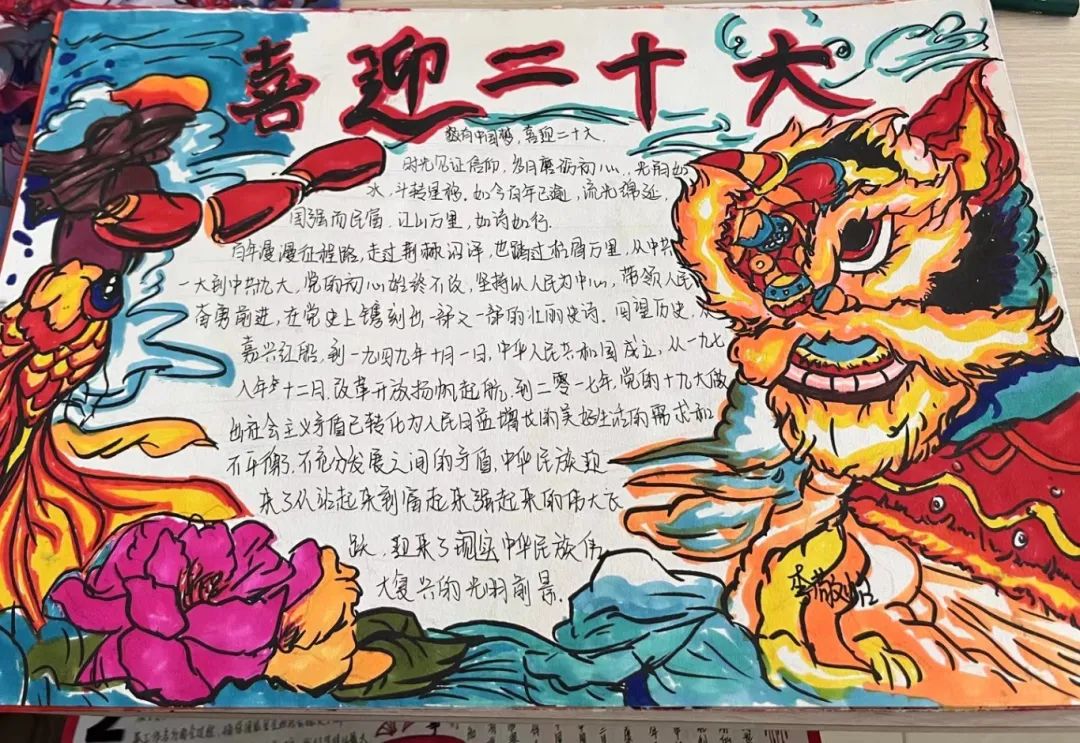 喜迎二十大
数有中国梦，喜迎二十大.
时光见证信仰，岁月磨砺初心，光阴如
水，斗转星移。如今百年已遍，流光绵延，
国强而民富，江山万里，如诗如行.
百年漫漫征程路，走过荆棘沼泽，也踏过松眉万里，从中共
一大到中共九大，党的初心始终不改，坚持以人民为中心，带领人民
奋勇前进，在党史上镌刻出一部又一部的壮丽史诗。回望历史，从
嘉兴红船，到一九四九年十月一日，中华人民共和国成立，从一九七
八年十二月，改革开放扬帆起航，到二零一七年，党的十九大做
出社会主义矛盾已转化为人民日益增长的美好生活的需求和
不平衡，不充分发展之间的矛盾，中华民族迎
来了从站起来到富起来强起来的伟大飞
跃，迎来了现实中华民族伟
大复兴的光明前景.